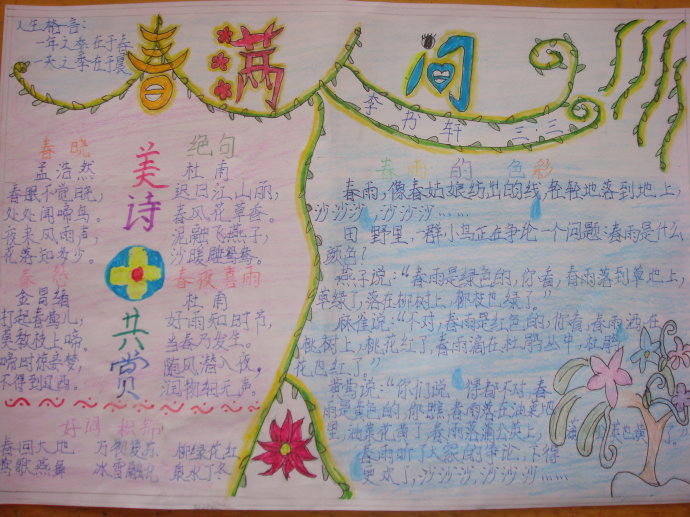 人生格言:
一年之季在于春
一天之季在于晨
春满 间
李 乃 轩 三·三
美诗共赏
春 晓
孟浩然
春眠不觉晓,
处处闻啼鸟。
夜来风雨声,
花落知多少。
金昌绪
打起黄莺儿,
莫教枝上啼。
啼时惊妾梦,
不得到辽西。
绝句
杜 甫
迟日江山丽,
春风花草香。
泥融飞燕子,
沙暖睡鸳鸯。
春夜喜雨
杜 甫
好雨知时节,
当春乃发生。
随风潜入夜,
润物细无声。
好词 积累
春回大地 万物复苏 柳绿花红
莺歌燕舞 冰雪融化 泉水丁冬
春雨的 色彩
春雨,像春姑娘纺出的线,轻轻地落到地上,
沙沙沙,沙沙沙……
田 野里,一群小鸟正在争论一个问题:春雨是什么
颜色?
燕子说:“春雨是绿色的,你看,春雨落到草地上,
草绿了,落在柳树上,柳枝也绿了。”
麻雀说:“不对,春雨是红色的,你看,春雨洒在
桃树上,桃花红了,春雨滴在杜鹃丛中,杜鹃
花也红了。”
黄莺说:“你们说 得都不对,春
雨是黄色的,你瞧,春雨落在油菜地
里,油菜花黄了,春雨落蒲公英上, 也黄 了。”
春雨听了大家的争论,下得
更欢了,沙沙沙,沙沙沙……